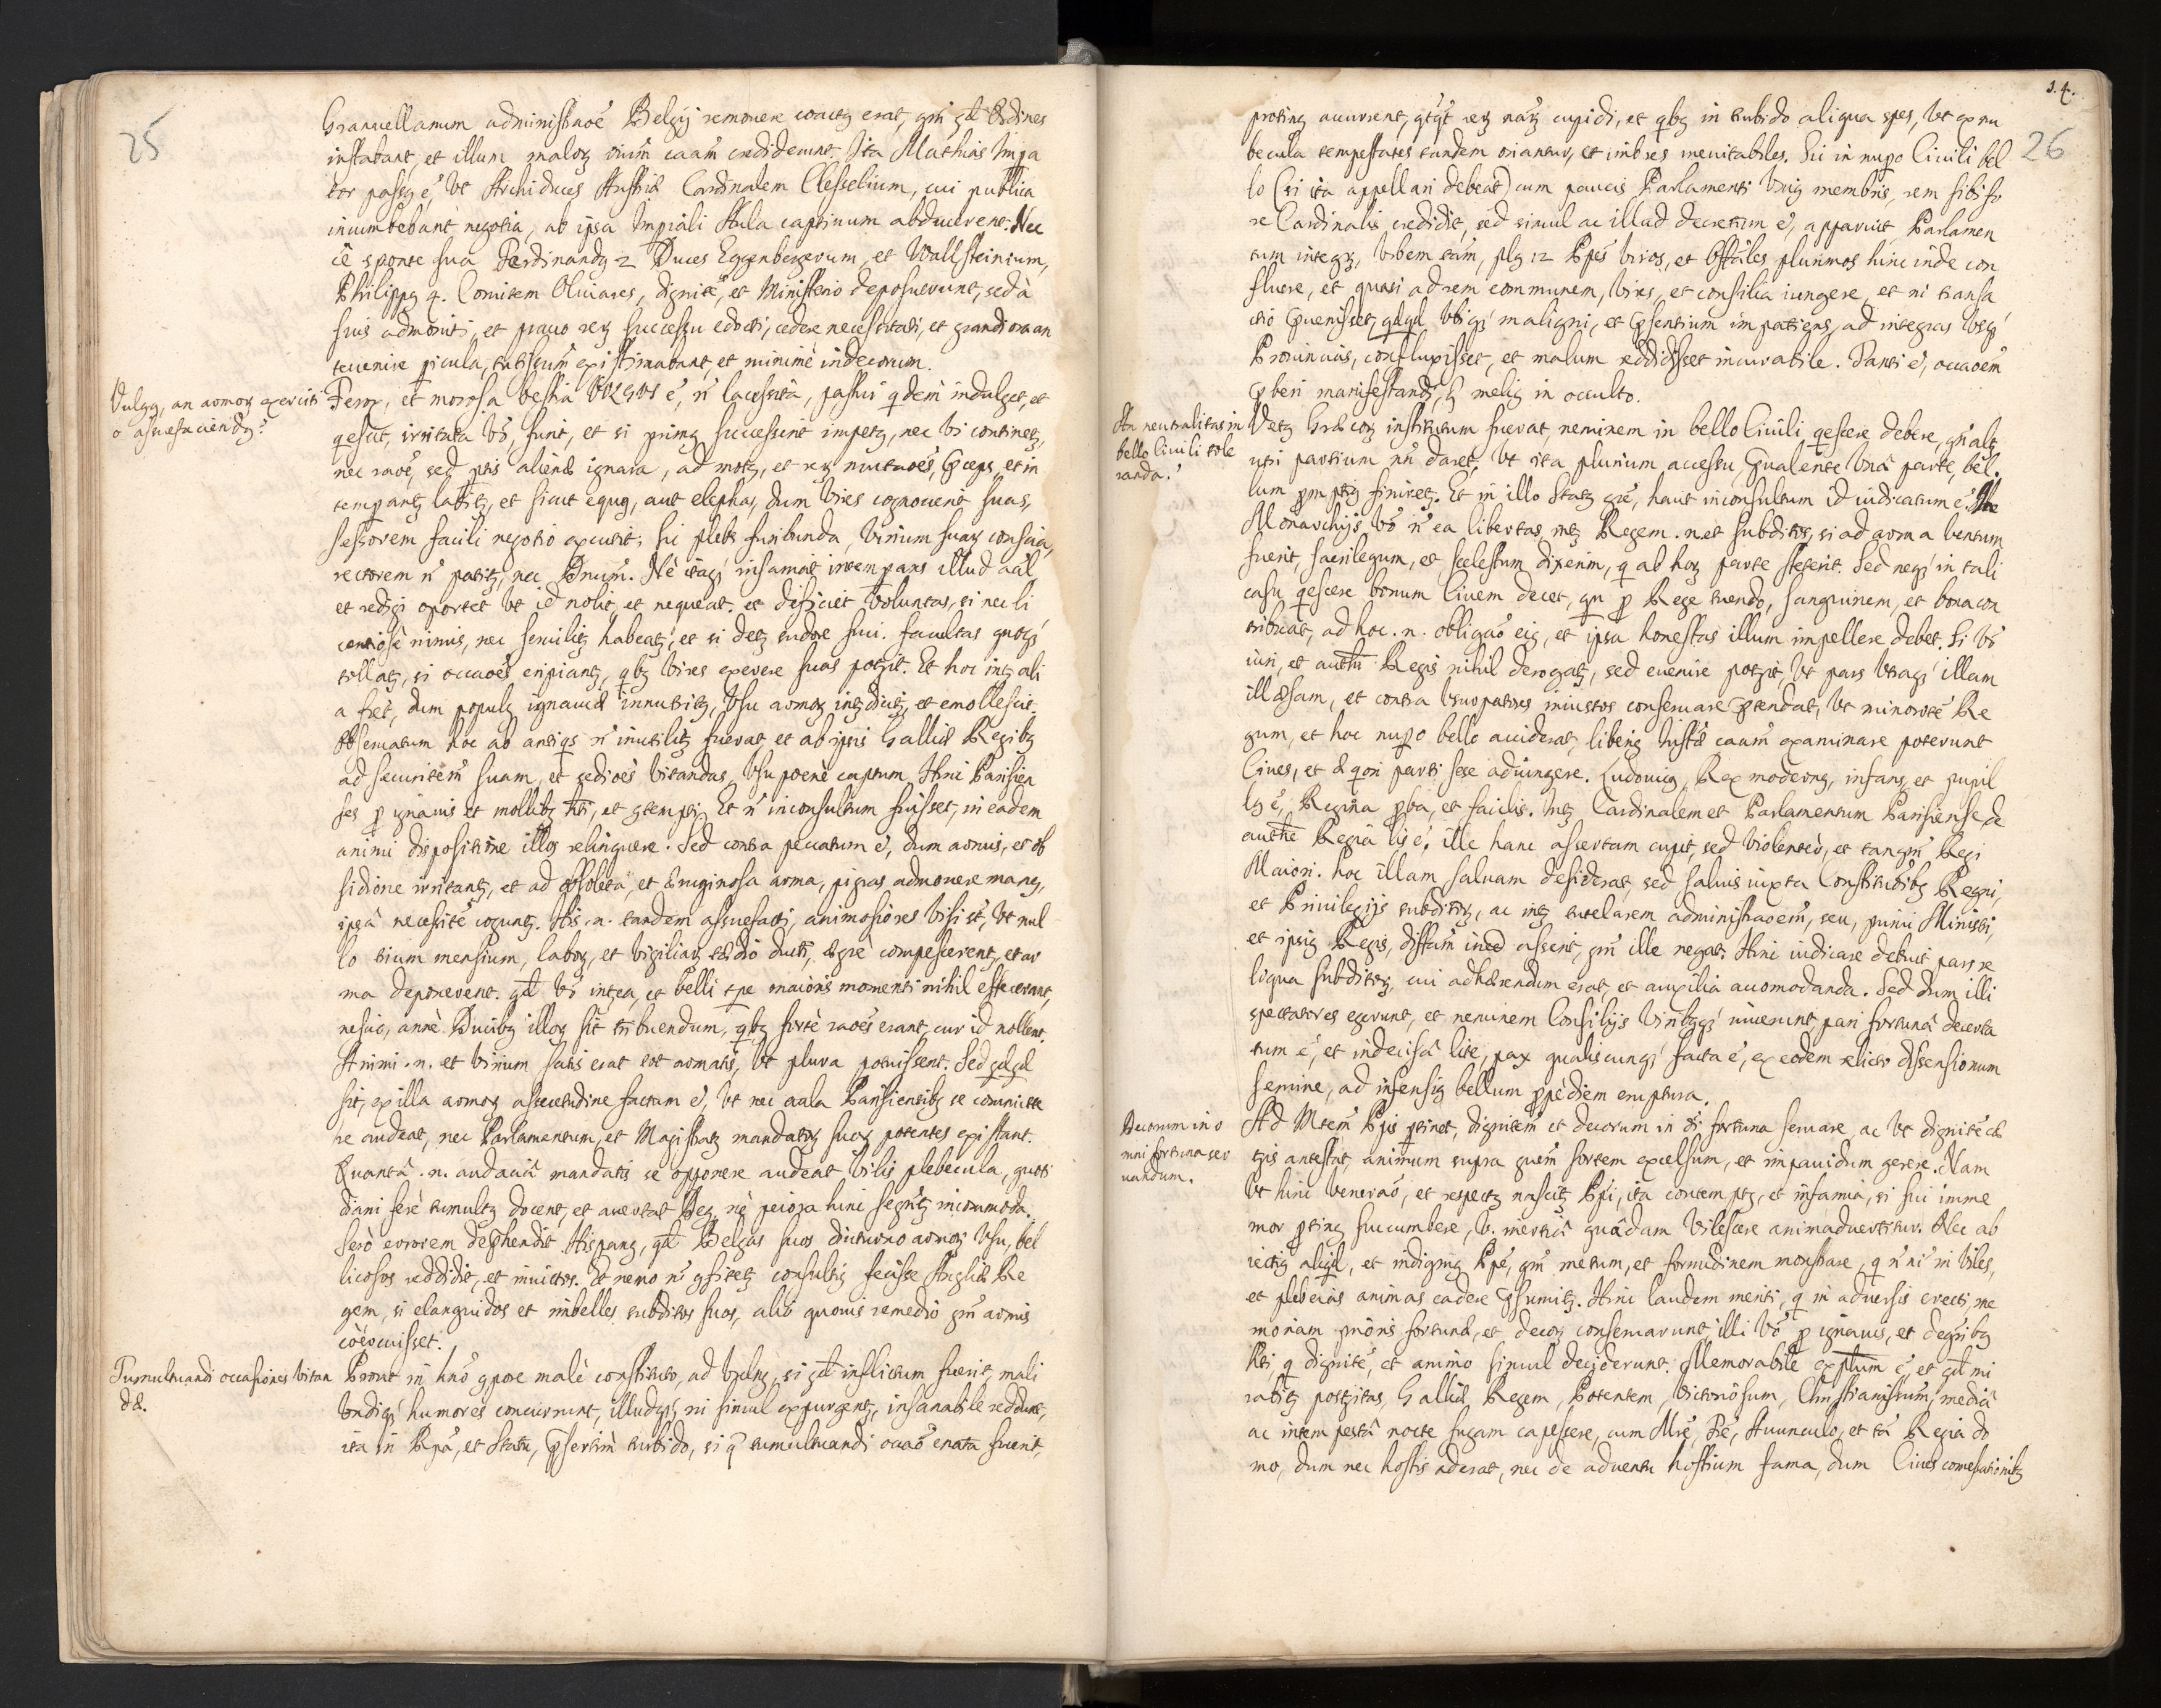 25
Granuellanum administraoẽ Belgij remouere coactꝫ erat, qm̃ qd Ordines
instabant, et illum malorꝫ oniũ caam̃ crediderunt. Ita Mathias Impa
tor passꝫ ẽ, vt Archiduces Austriæ Cardinalem Clesselium, cui publica
incumbebant negotia, ab ipsa Impiali Aula captiuum abducerent. Nec
sponte sua Ferdinandꝫ 2 Duces Eggenbergerum, et Wallsteinium,
Philippꝫ 4. Comitem Oliuares, dignitẽ, et Ministerio deposuerunt, sed à
suis admoniti, et prauo rerꝫ successu edocti, cedere necessitati, et grandiora an
teuenire picula, tutissimũ existimabant, et minimè indecorum.
Vulgꝫ, an armorꝫ exerciti
o assuefaciendꝫ?
Ferox, et morosa bestia VULGUS ẽ, ñ lacessita, passui qdem indulget, et
qescit, irritata vò, furit, et si primꝫ successerit impetꝫ, nec vi continetꝫ,
nec raoẽ, sed ptis alienæ ignara, ad motꝫ, et rerꝫ mutaoẽs, pceps, et in
tempantꝫ labitꝫ, et sicut equꝫ, aut elephas, dum vires cognouerit suas,
sessorem facili negotio excutit; sic plebs furibunda, virium suarꝫ conscia,
rectorem ñ patitꝫ, nec Dnũm. Nè itaqꝫ insaniat intempans illud aal,
et redigi oportet vt id nolit, et nequeat. et deficiet voluntas, si nec li
centiosè nimis, nec seruiliter habeatꝫ, et si detꝫ sudore frui. facultas quoqꝫ
tollatꝫ, si occaoẽs eripiantꝫ, qbꝫ vires exerere suas possit. Et hoc intꝫ ali
a fiet, dum populꝫ ignauiæ innutritꝫ, vsu armorꝫ intꝫdicitꝫ, et emollescit.
Obseruatum hoc ab antiqs ñ inutiliꝫ fuerat, et ab ipsis Galliæ Regibꝫ
ad securitem̃ suam, et sedioẽs vitandas, vsu poenè captum. Hinc Parisien
ses p ignauis et mollibꝫ hti, et ptempti. Et ñ inconsultum fuisset, in eadem
animi dispositione illos relinquere. Sed contra peccatum ẽ, dum armis, et ob
sidione irritantꝫ, et ad obsoleta, et eruginosa arma, pigras admouere manꝫ,
ipsa necessitẽ cogunt. His .n. tandem assuefacti, animosiores visi st̃, vt nul
lo trium mensium, laborꝫ, et vigiliarꝫ tædio ducti, ægrè compescerentꝫ, et ar
ma deponerent. qd vò interea, et belli tpe maioris momenti nihil effecerunt,
nescio, annè Ducibꝫ illorꝫ sit tribuendum, qbꝫ fortè raoẽs erant, cur id nollent.
Animi .n. et virium satis erat tot armatis, vt plura potuissent. Sed qdqd
sit, ex illa armorꝫ assuetudine factum ẽ, vt nec aula Parisiensibꝫ se committe
re audeat, nec Parlamentum, et Magistratꝫ mandatorꝫ suorꝫ potentes existant.
Quantâ .n. audaciâ mandatis se opponere audeat vilis plebecula, quoti
diani ferè tumultꝫ docent, et auertat Deꝫ, nè peiora hinc sequantꝫ incommoda.
Serò errorem dephendit Hispanꝫ, qd Belgas suos diuturno armorꝫ vsu, bel
licosos reddidit, et inuictos. Et nemo ñ pfitetꝫ consultiꝫ fecisse Angliæ Re
gem, si elanguidos et imbelles subditos suos, alio quouis remedio qm̃ armis
coercuisset.
Tumultuandi occasiones vitan
dæ.
Prout in huo gpore malè constituto, ad vulnꝫ, si qd inflictum fuerit, mali
vndiqꝫ humores concurrunt, illudqꝫ, ni simul expurgentꝫ, insanabile reddunt,
ita in Rpâ, et Statu, psertim turbido, si q̃ tumultuandi occao enata fuerit,
14.
26
protinꝫ accurrent, qtqt rerꝫ nouarꝫ cupidi, et qbꝫ in turbido aliqua spes, vt ex nu
becula tempestates tandem oriantur, et imbres ineuitabiles. Sic in nupo Ciuili bel
lo (si ita appellari debeat) cum paucis Parlamenti vniꝫ membris, rem sibi fo
re Cardinalis credidit, sed simul ac illud decretum ẽ, apparuit, Parlamen
tum integrꝫ, vrbem totam, plꝫ 12 Ppes viros, et Offãles plurimos hinc inde con
fluere, et quasi ad rem communem, vires, et consilia iungere, et ni transa
ctio pueniisset, qdqd vbiqꝫ maligni, et psentium impatiens, ad integras vsqꝫ
Prouincias, confluxisset, et malum reddidisset incurabile. Tanti ẽ, occaoem̃
pberi manifestandi, q̃ meliꝫ in occulto.
An neutralitas in
bello Ciuili tole
randa?
Vetꝫ Græcorꝫ institutum fuerat, neminem in bello Ciuili qescere debere, qn̄ alt
utri partium nñ daret. Vt ita plurium accessu, pualente vnâ parte, bel
lum promptiꝫ finiretꝫ. Et in illo Statꝫ gñe, haut inconsultum id iudicatum ẽ. In
Monarchijs vò ñ ea libertas, intꝫ Regem .n. et subditos, si ad arma ventum
fuerit, sacrilegum, et scelestum dixerim, q ab horꝫ parte steterit. Sed neqꝫ in tali
casu, qescere bonum Ciuem decet, qn p Rege tuendo, sanguinem, et bona con
tribuat, ad hoc .n. obligaõ eiꝫ, et ipsa honestas illum impellere debet. Si vò
iuri, et aucthi Regis nihil derogatꝫ, sed euenire potꝫit, vt pars vtraqꝫ illam
illæsam, et contra vsurpatores iniustos conseruare ptendat, vt minoritẽ Re
gum, et hoc nupo bello acciderat, liberiꝫ iustæ caam̃ examinare poterunt
Ciues, et æqori parti sese adiungere. Ludouicꝫ, Rex modernꝫ, infans, et pupil
lꝫ ẽ, Regina pba, et facilis. Intꝫ Cardinalem et Parlamentum Parisiense, de
aucthe Regiâ lis ẽ, ille hanc assertam cupit, sed violenter, et tanqm̃ Regi
Maiori. hoc illam saluam desiderat, sed saluis iuxta Constitutibꝫ Regni,
et Priuilegijs subditorꝫ, ac intꝫ tutelarem administraoem̃, seu, primi Ministri,
et ipsiꝫ Regis, diffam̃ inee asserit, qm̃ ille negat. Hinc iudicare debuit pars re
liqua subditorꝫ, cui adhærendum erat, et auxilia accomodanda. Sed dum illi
spectatores egerunt, et neminem Consilijs viribqꝫ iuuerunt, pari fortunâ decerta
tum ẽ, et indecisâ lite, pax qualiscunqꝫ facta ẽ, ex eodem relicto dissensionum
semine, ad infensiꝫ bellum ppediem eruptura.
Decorum in o
mni fortuna ser
uandum.
Ad Mtem̃ Ppis ptinet, dignitem̃ et decorum in oi fortuna seruare, ac vt dignitẽ cæ
teris antestat, animum supra quem̃ sortem excelsum, et impauidum gerere. Nam
vt hinc veneraõ, et respectꝫ nascitꝫ Ppi, ita contemptꝫ, et infamia, si sui imme
mor ptinꝫ succumbere, v. inertiâ quâdam vilescere animaduertitur. Nec ab
iectiꝫ aliqd, et indigniꝫ Ppe, qm̃ metum, et formidinem monstrare, q ñ ni in viles,
et plebeias animas cadere psumitꝫ. Hinc laudem meriti, q in aduersis erecti, me
moriam prioris fortunæ, et decorꝫ conseruarunt, illi vò p ignauis, et degeribꝫ
hti, q dignitẽ, et animo simul deciderunt. Memorabile explum ẽ, et qd mi
rabitꝫ postꝫitas, Galliæ Regem, Potentem, victoriosum, Christianissimũ, mediâ
ac intempestâ nocte fugam capessere, cum Mrẽ, Frẽ, Auunculo, et tâ Regia do
mo, dum nec hostis aderat, nec de aduentu hostium fama, dum Ciues comessationibꝫ